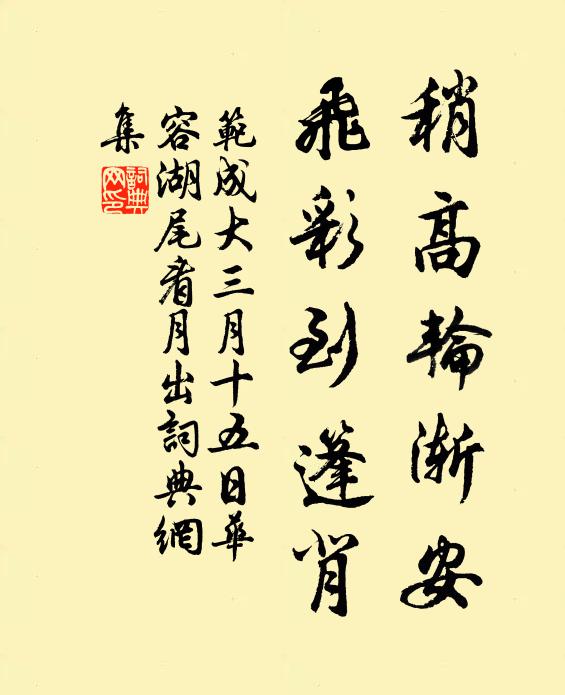 稍高輪漸安
飛彩到篷背
範成大三月十五日華
容湖尾看月出詞典網
集
詞典
网印